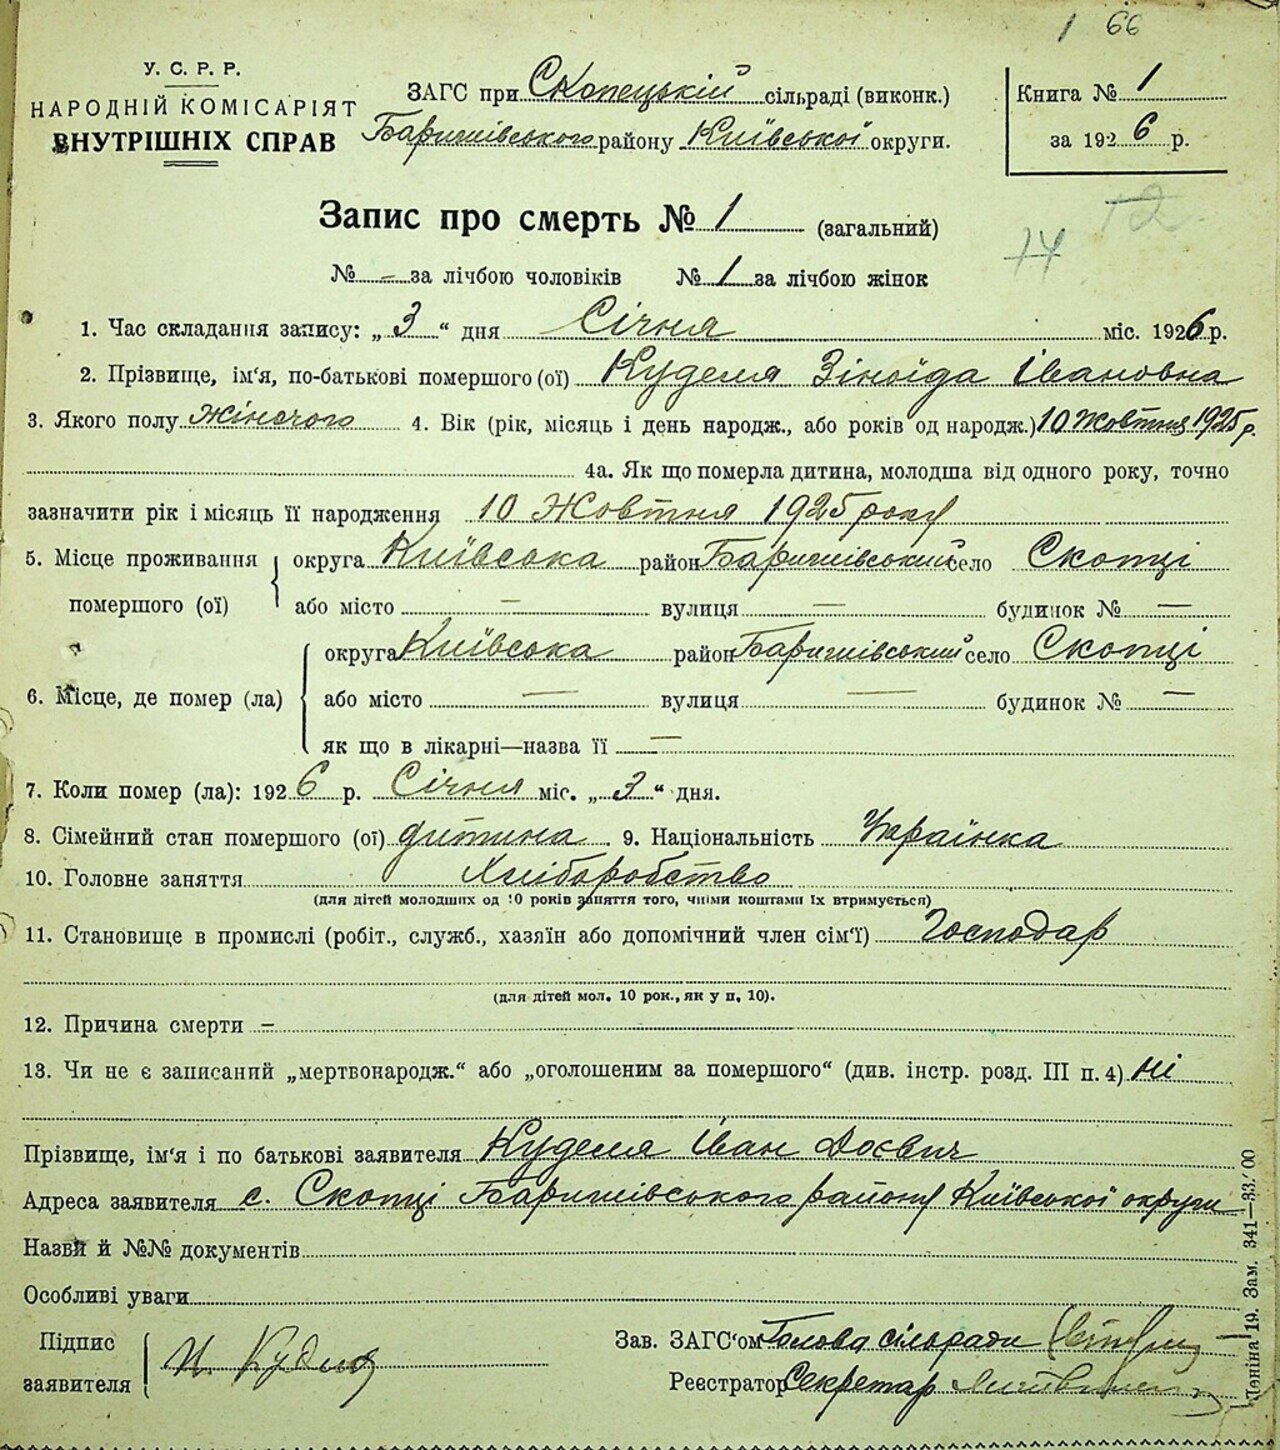 1 66
У. С. Р. Р.
НАРОДНІЙ КОМІСАРІЯТ
ВНУТРІШНІХ СПРАВ
ЗАГС при Скопецькій сільраді (виконк.)
Баришівського району Київської округи.
Книга № 1
за 1926 р.
Запис про смерть № 1 (загальний)
12
14
№ - за лічбою чоловіків № 1 за лічбою жінок
1. Час складання запису: „ 3 “ дня Січня міс. 1926 р.
2. Прізвище, ім'я, по-батькові помершого (ої) Куделя Зіноїда Івановна
3. Якого полу Жіночого 4. Вік (рік, місяць і день народж., або років од народж.) 10 Жовтня 1925 р.
4а. Як що померла дитина, молодша від одного року, точно
зазначити рік і місяць її народження 10 Жовтня 1925 року
5. Місце проживання помершого (ої) округа Київська район Баришівський село Скопці
або місто — вулиця — будинок № —
6. Місце, де помер (ла) округа Київська район Баришівський село Скопці
або місто — вулиця — будинок № —
як що в лікарні—назва її —
7. Коли помер (ла): 1926 р. Січня міс. „ 3 “ дня.
8. Сімейний стан помершого (ої) дитина. 9. Національність Українка
10. Головне заняття Хліборобство
(для дітей молодших од 10 років заняття того, чиїми коштами їх втримується)
11. Становище в промислі (робіт., служб., хазяїн або допомічний член сім'ї) Господар
(для дітей мол. 10 рок., як у п. 10).
12. Причина смерти –
13. Чи не є записаний „мертвонародж.“ або „оголошеним за помершого“ (див. інстр. розд. III п. 4) ні
Прізвище, ім'я і по батькові заявителя Куделя Іван Досвич
Адреса заявителя с. Скопці Баришівського району Київської округи
Назви й №№ документів
Особливі уваги
Підпис заявителя И. Кудиля
Зав. ЗАГС'ом Голова сільради
Реєстратор Секретар
Леніна 19. Зам. 341—33.